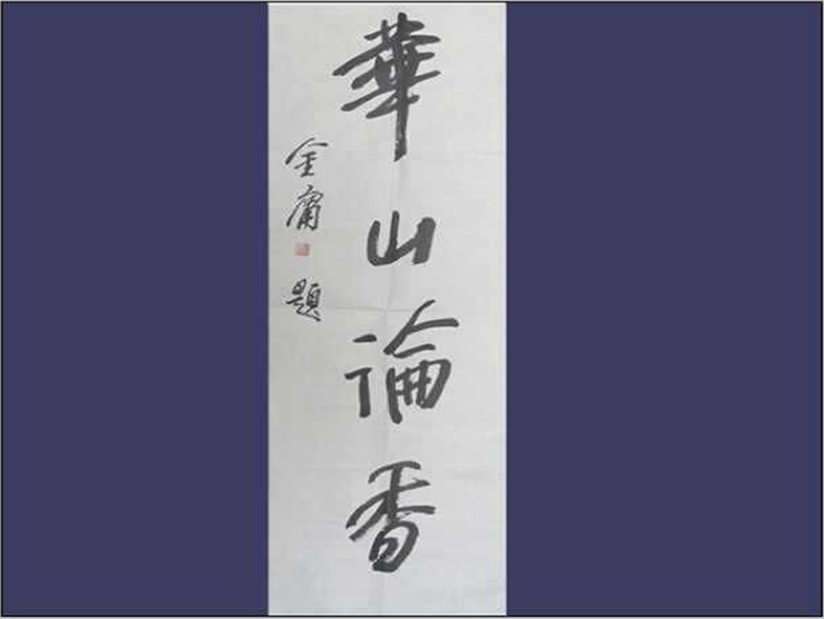 華山論香
金庸題